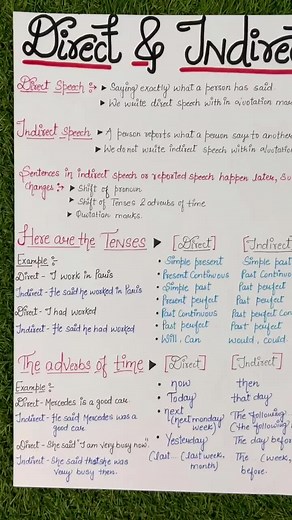 Direct & Indirec
Direct Speech :→ ▸ Saying exactly what a person has said.
▸ We write direct speech within quotation mar
Indirect speech → ▸ A person reports what a person says to anothe
▸ We do not write indirect speech within quotatio
Sentences in indirect speech or reported speech happen later, Su
changes :→ ▸ Shift of pronoun
▸ Shift of Tenses & adverbs of time
▸ Quotation marks.
Here are the Tenses ▸ [Direct] [Indirect
Example :
• Simple present Simple past
Direct - I work in Paris
• Present Continuous Past Continuo
Indirect - He said he worked in Paris
• Simple past Past perfect
• Present perfect Past perfect
Direct - I had worked
• Past Continuous Past perfect Con
Indirect - He said he had worked
• Past perfect Past perfect
• Will, Can would, could
The adverbs of time ▸ [Direct] [Indirect
Example :
• now then
Direct - Mercedes is a good car.
• Today that day
Indirect - He said Mercedes was a
good car.
• next The following
(next monday/ (the following
week)
Direct - She said "I am very busy now".
• Yesterday The day before
Indirect - She said that she was
very busy then.
(last... (last week, The (week,
month) before.